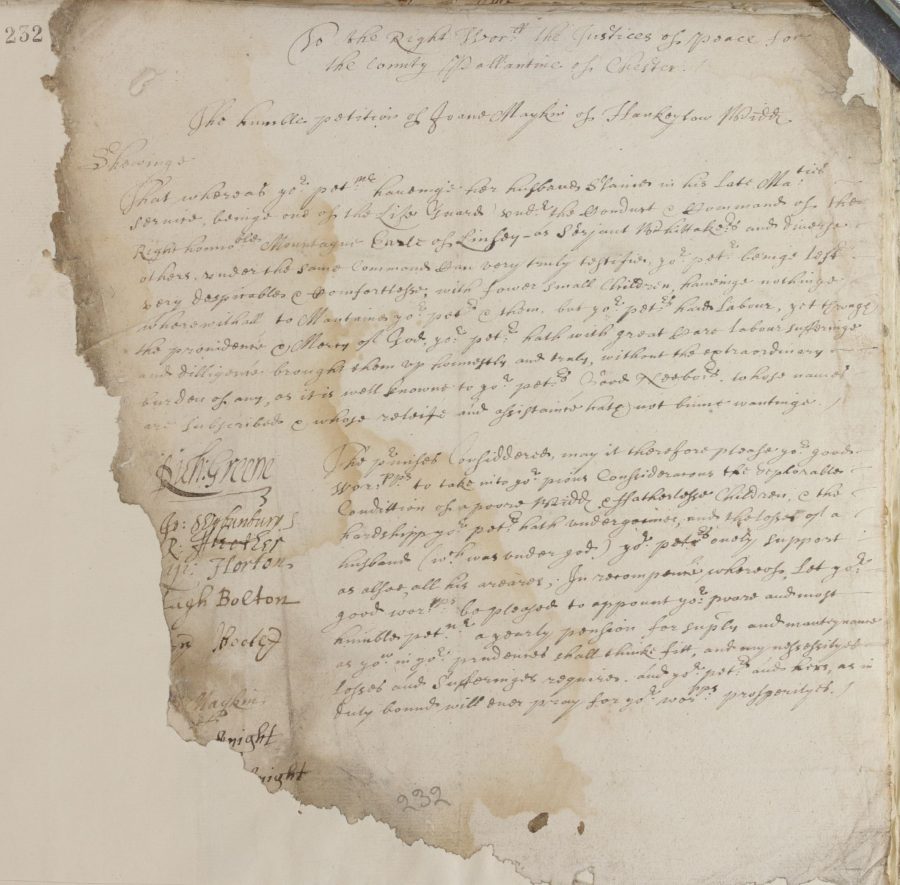 232
To the Right Wor:ll the Justices of Peace for
the County Pallantine of Chester.
The humble petition of Joane Maykin of Hankeylow Widd
Shewinge
That whereas yo:r pet:nr haueinge her husband Slaine in his Late Ma:ties
seruice, beinge one of the Life Guard vnd:r the Conduct & Command of the
Right hono:ble Mountague Earle of Linsey as Serjant Whittakers and diuerse
others vnder the same Command Can very truly testifie, yo:r pet:r beinge left
very despicable & Comfortlesse, with fower small Children, haueinge nothinge
wherewithall to Mantaine yo:r pet:r & them, but yo:r pet:rs hard Labour, yet through
the prouidence & Mercy of God, yo:r pet:r hath with great Care labour sufferinge
and dilligence brought them vp honestly and truly, without the extraordinary
burden of any, as it is well knowne to yo:r pet:rs Good Neebors, whose names
are subscribed & whose releife and assistance hath not binne wantinge.
The p:rmises Considdered, may it therefore please yo:r good
Wor:pps to take into yo:r pious Considderacons the deplorable
Condittion of a poore Widd & Ffatherlesse Children, & the
hardshipp yo:r pet:r hath vndergoinne, and the losse of a
husband (w:ch was vnder god) yo:r pet:rs onely support
as alsoe all his areares, In recompence whereof, Let yo:r
good wor:pps be pleased to appoint yo:r poore and most
humble pet:nr a yearly pension for supply and manteynance
as yo:w in yo:r prudences shall thinke fitt, and my nessessityes
Losses and Sufferinges requires, and yo:r pet:r and hers, as in
duty bound will ever pray for yo:r wor:pps prosperityes.
Rich: Greene
Horton
ugh Bolton
Maykin
night
night
232